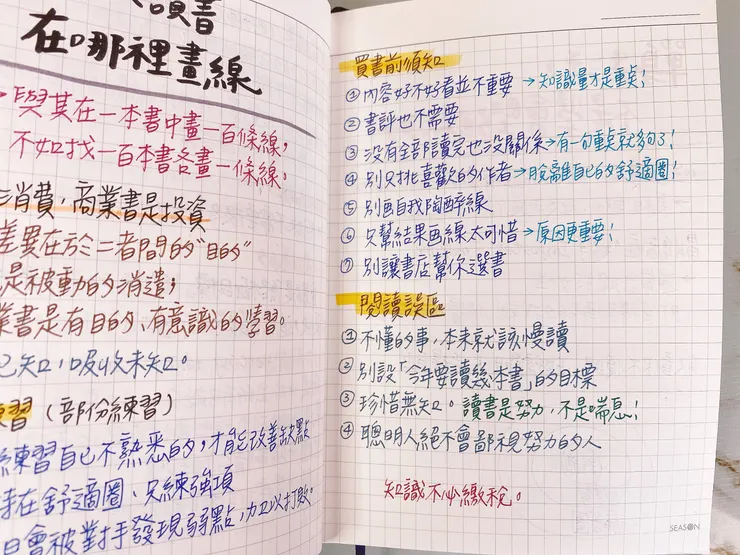 讀書
在哪裡畫線
與其在一本書中畫一百條線,
不如找一百本書各畫一條線。
消費,商業書是投資
差異在於二者間的"目的"
是被動的消遣;
業書是有目的、有意識的學習。
已知,吸收未知。
練習(部份練習)
練習自己不熟悉的,才能改善缺點
待在舒適圈,只練強項
只會被對手發現弱點,加以打敗。
買書前須知
① 內容好不好看並不重要→知識量才是重点!
② 書評也不需要
③ 没有全部讀完也没關係→有一句重点就够了!
④ 別只挑喜歡的作者→脫離自己的舒適圈!
⑤ 別画自我陶醉線
⑥ 只幫結果画線太可惜→原因更重要!
⑦ 別讓書店幫你選書
閱讀誤區
① 不懂的事,本來就該慢讀
② 別設「今年要讀幾本書」的目標
③ 珍惜無知。讀書是努力,不是喘息!
④ 聰明人絕不會鄙視努力的人
知識不必繳稅。
SEASON